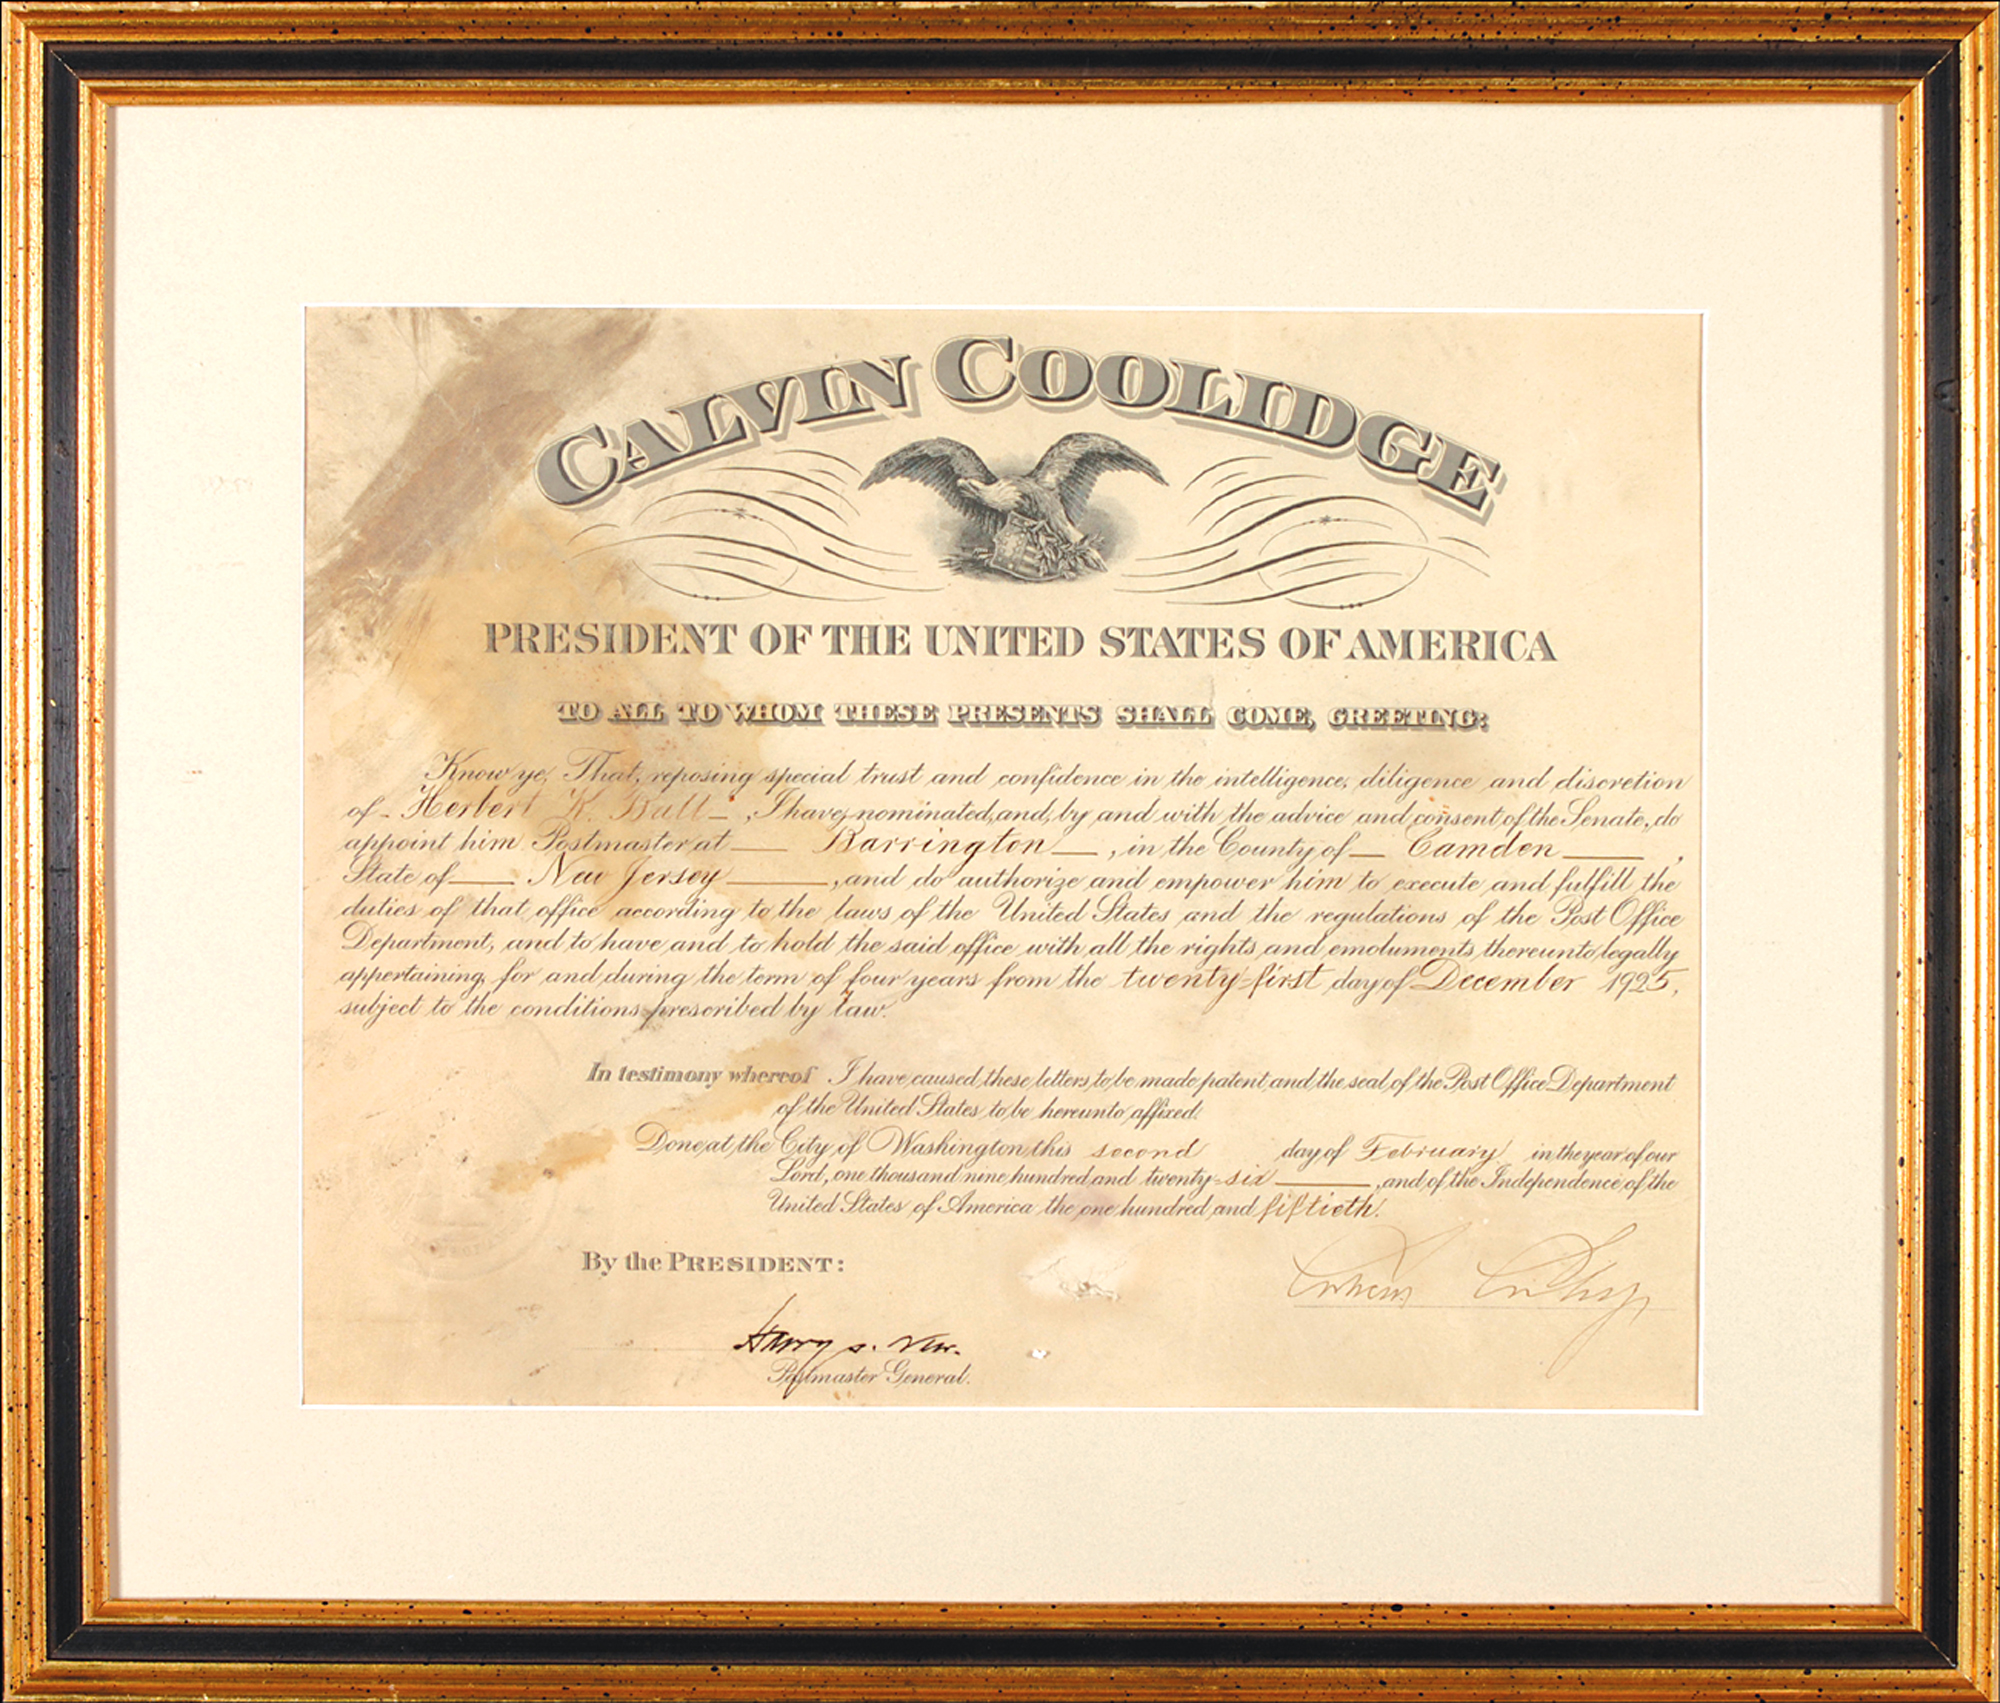 CALVIN COOLIDGE
PRESIDENT OF THE UNITED STATES OF AMERICA
TO ALL TO WHOM THESE PRESENTS SHALL COME, GREETING:
Know ye, That, reposing special trust and confidence in the intelligence, diligence and discretion
of - Herbert K. Bull -, I have nominated, and, by and with the advice and consent of the Senate, do
appoint him Postmaster at — Barrington —, in the County of — Camden —,
State of — New Jersey —, and do authorize and empower him to execute and fulfill the
duties of that office according to the laws of the United States and the regulations of the Post Office
Department, and to have and to hold the said office with all the rights and emoluments thereunto legally
appertaining, for and during the term of four years from the twenty-first day of December 1925,
subject to the conditions prescribed by law.
In testimony whereof I have caused these letters to be made patent and the seal of the Post Office Department
of the United States to be hereunto affixed.
Done at the City of Washington this second day of February in the year of our
Lord, one thousand nine hundred and twenty-six —, and of the Independence of the
United States of America the one hundred and fiftieth.
By the PRESIDENT:
Calvin Coolidge
Harry S. New.
Postmaster General.